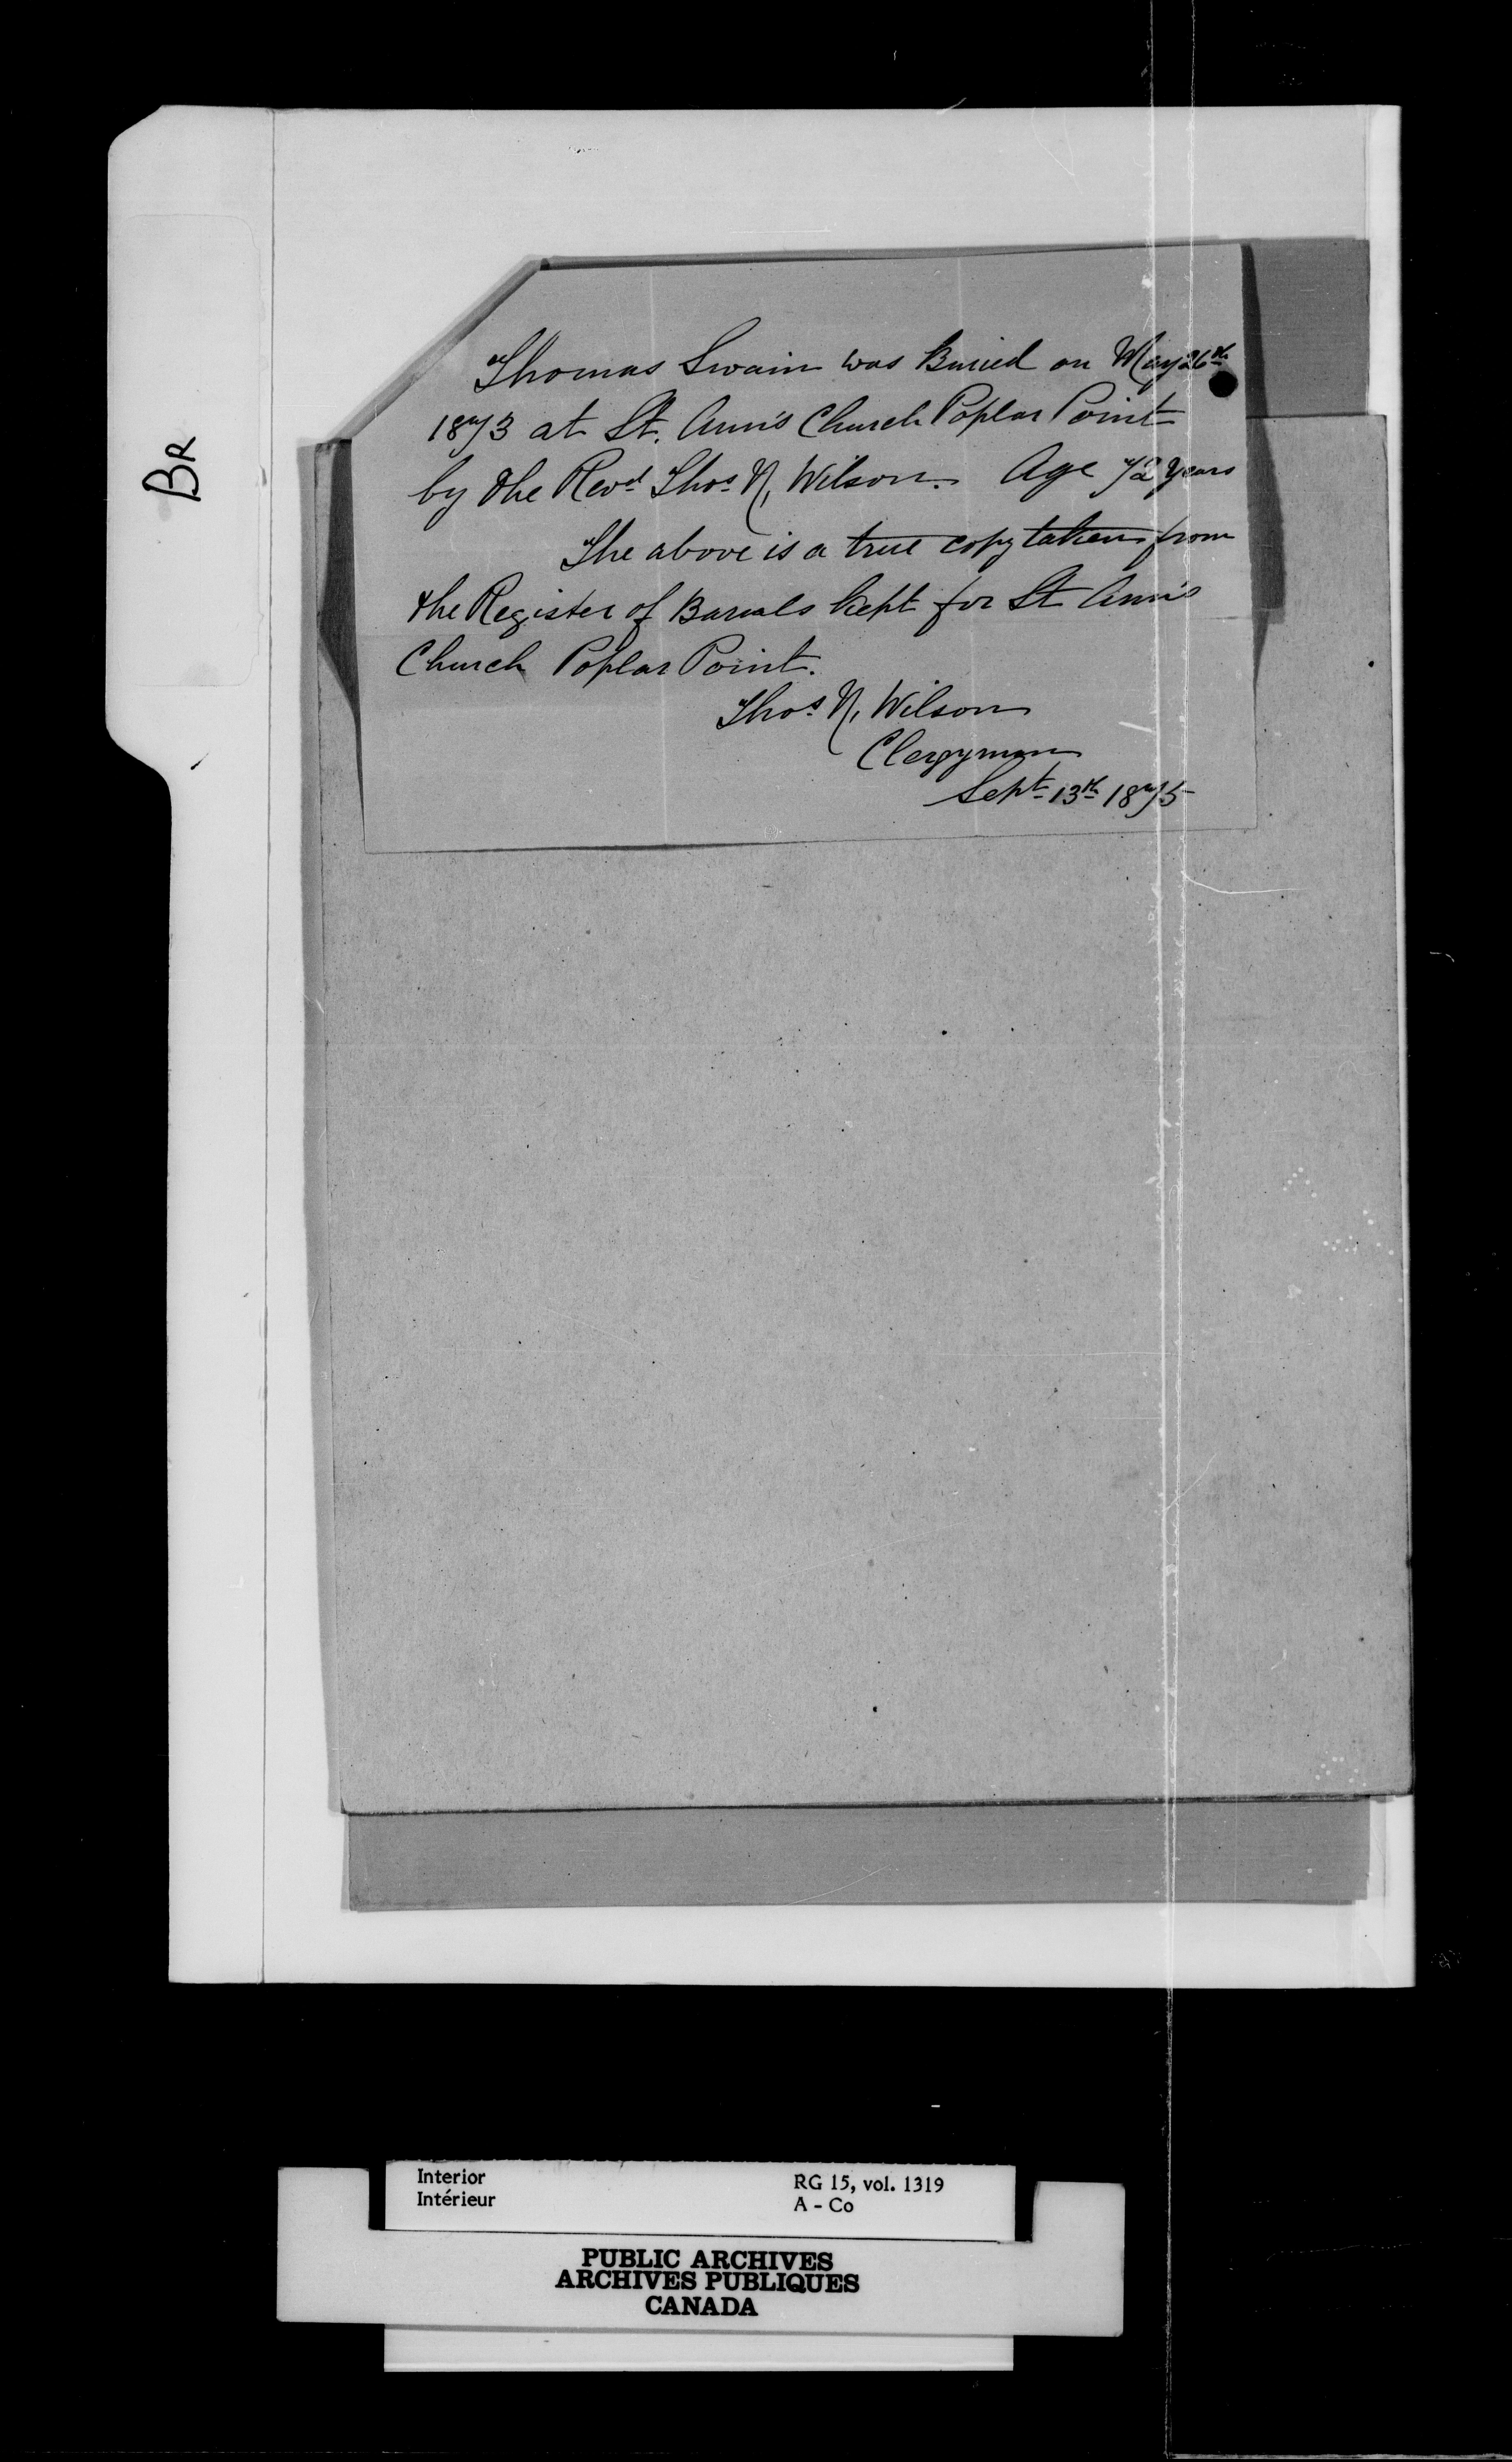 BR
Thomas Swain was Buried on May 26th
1873 at St. Ann's Church Poplar Point
by the Revd Thos N, Wilson. Age 72 years
The above is a true copy taken from
the Register of Burials kept for St Ann's
Church Poplar Point.
Thos N, Wilson
Clergyman
Sept 13th 1875
Interior
Intérieur
RG 15, vol. 1319
A - Co
PUBLIC ARCHIVES
ARCHIVES PUBLIQUES
CANADA